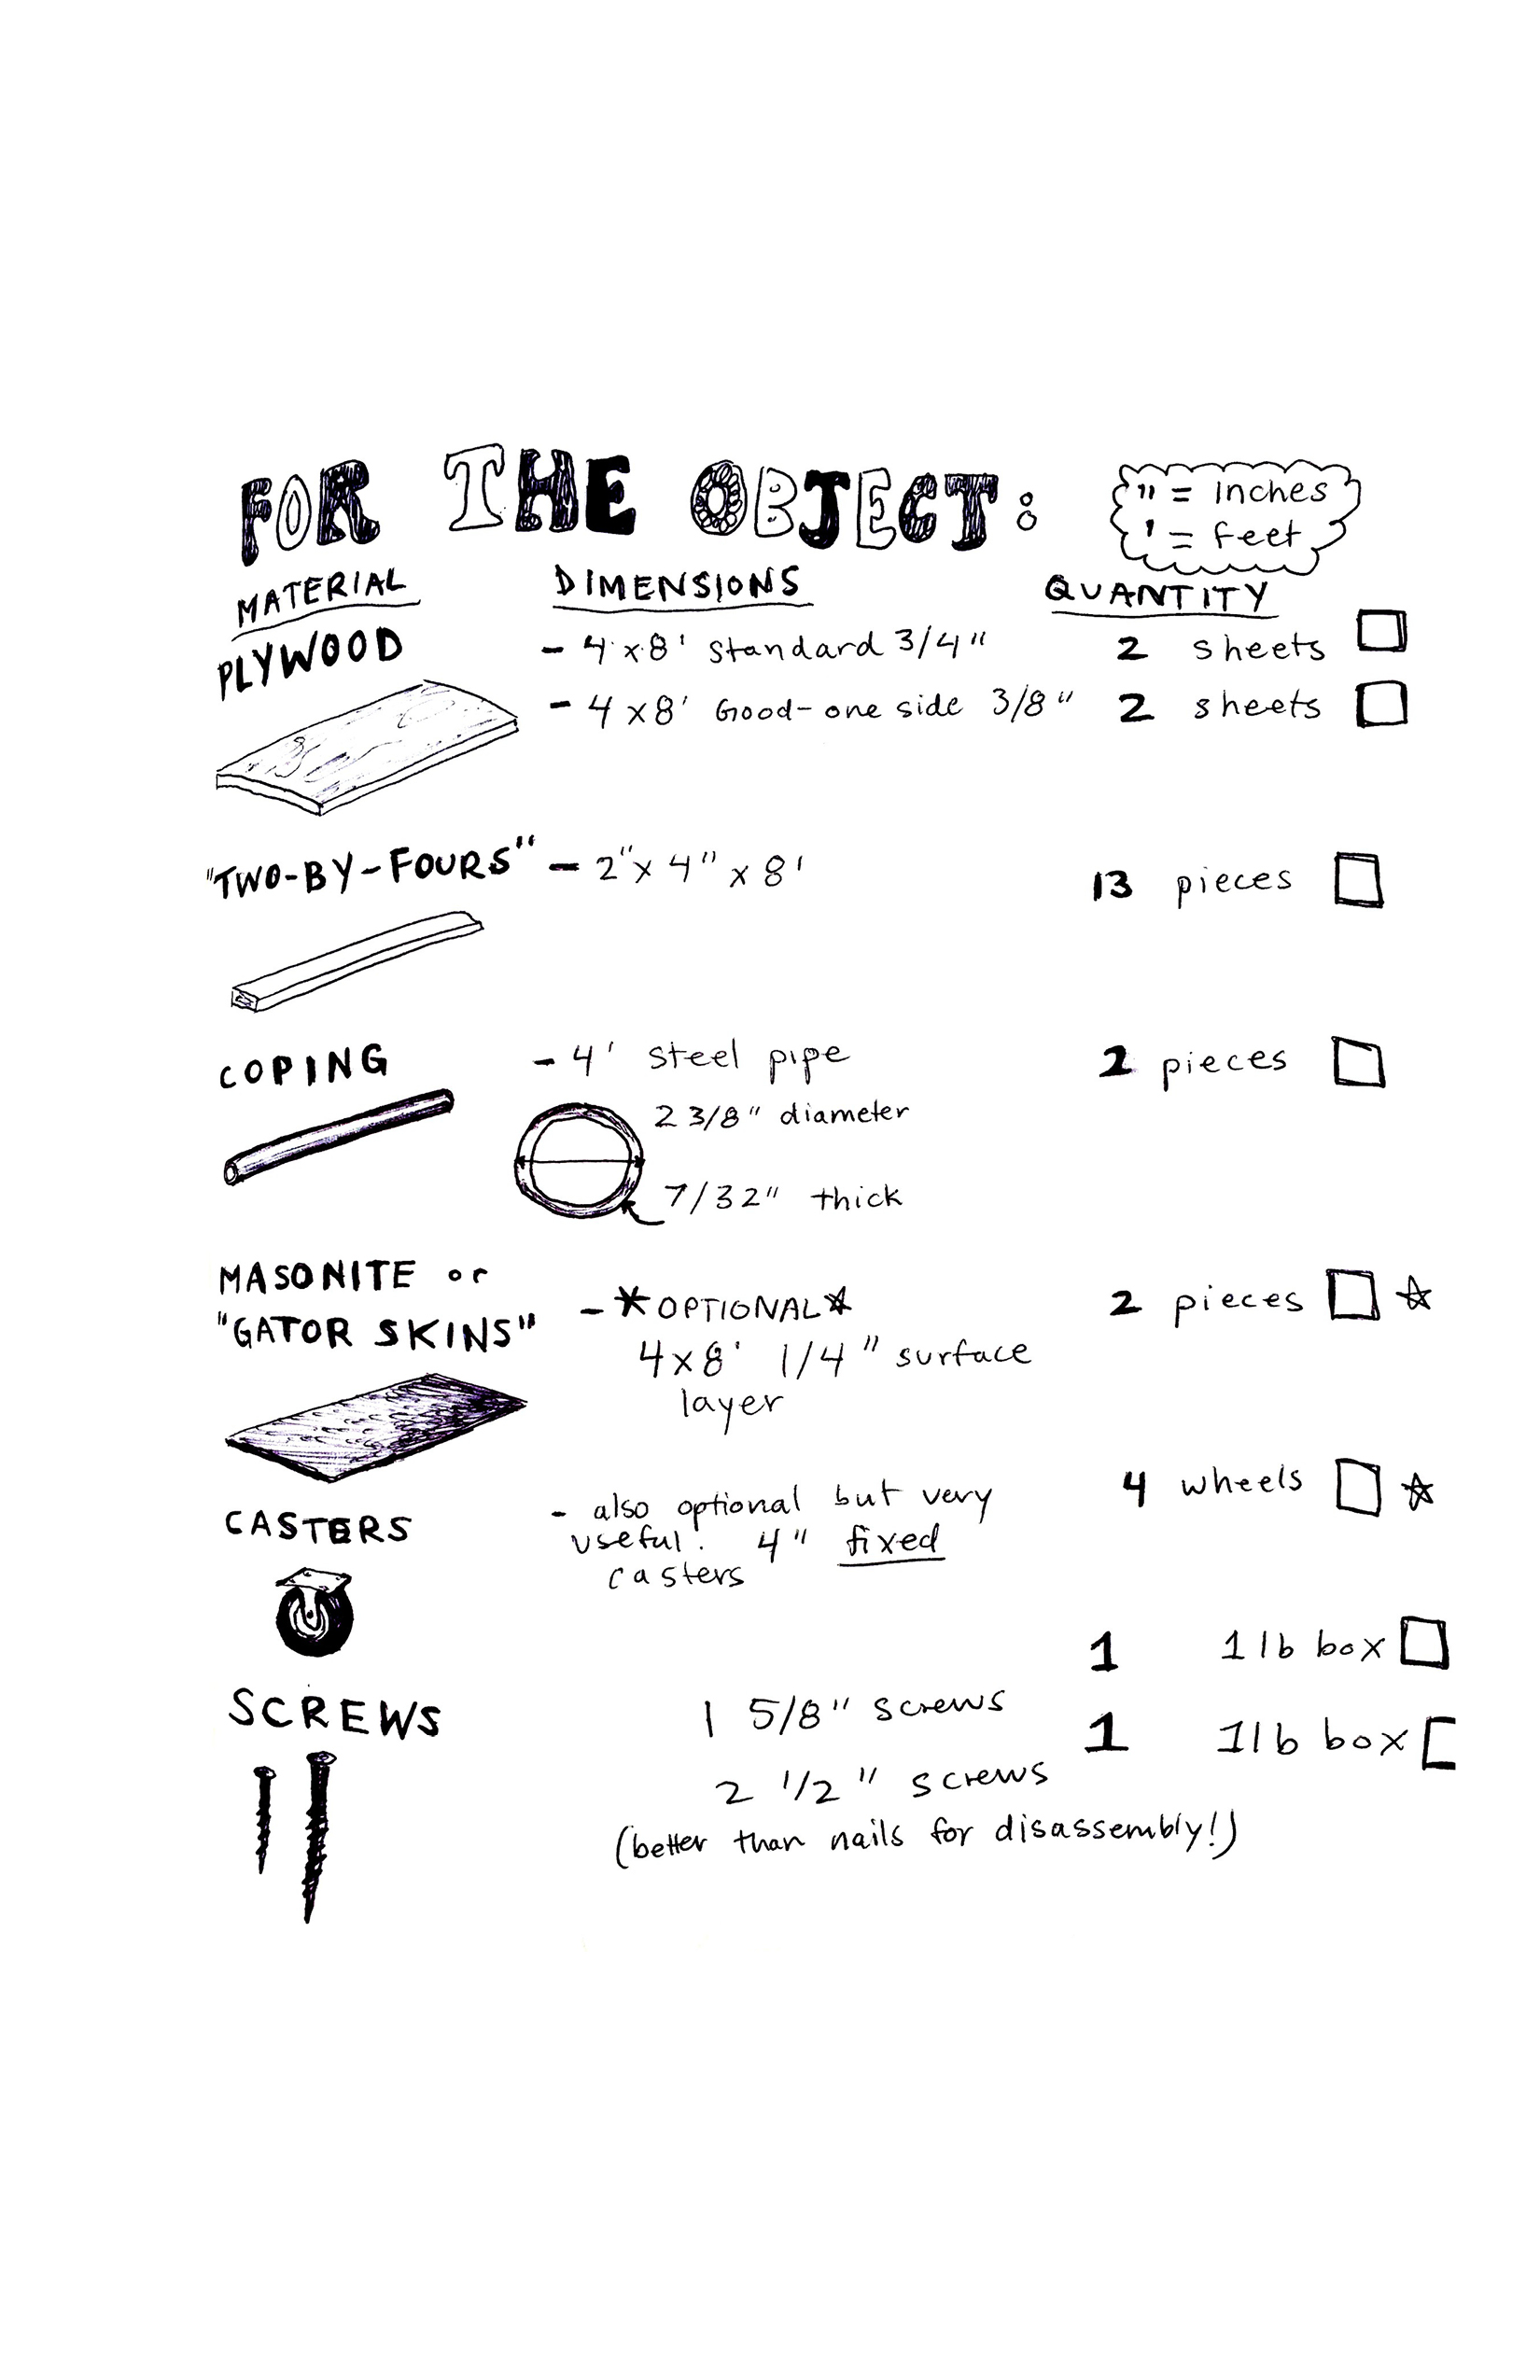 FOR THE OBJECT:
" = inches
' = feet
MATERIAL DIMENSIONS QUANTITY
PLYWOOD - 4'x8' standard 3/4" 2 sheets
- 4x8' Good-one side 3/8" 2 sheets
"TWO-BY-FOURS" - 2"x4"x8' 13 pieces
COPING - 4' steel pipe 2 pieces
2 3/8" diameter
7/32" thick
MASONITE or
"GATOR SKINS" - *OPTIONAL* 2 pieces
4x8' 1/4" surface
layer
CASTERS - also optional but very 4 wheels
useful. 4" fixed
casters
1 1lb box
SCREWS 1 5/8" screws
1 1lb box
2 1/2" screws
(better than nails for disassembly!)